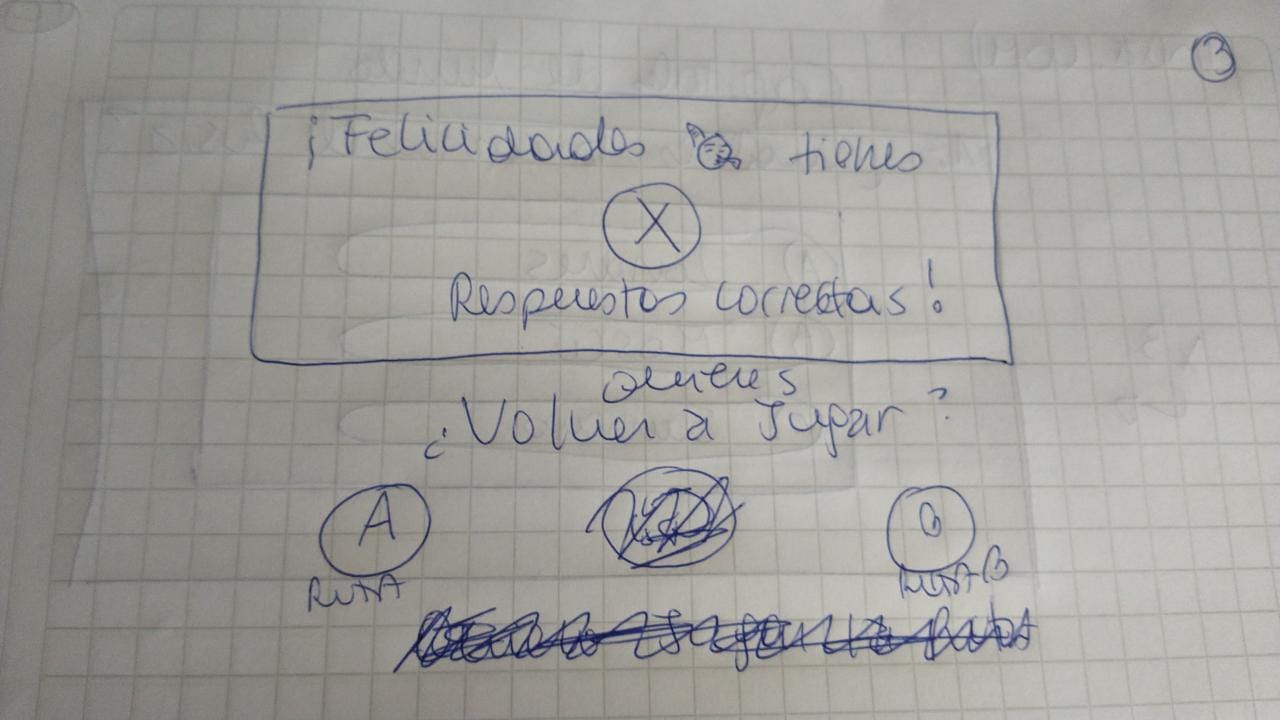 3
¡Felicidades tienes
X
Respuestas correctas!
quieres
¿Volver a Jugar?
A
B
RutA
RutA B